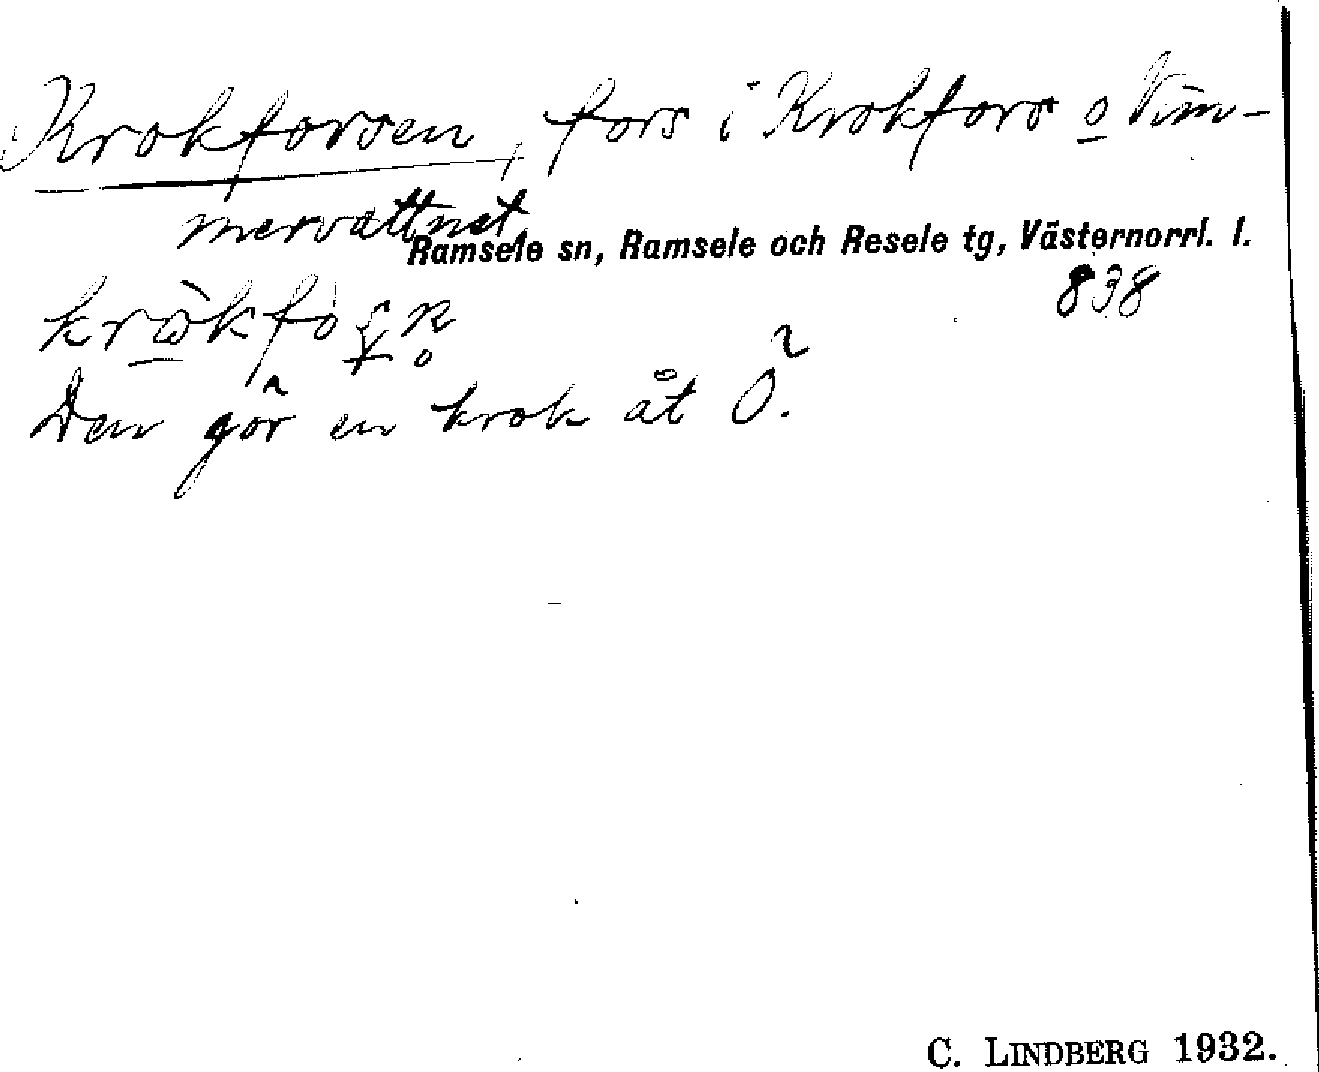 Krokforsen, fors i Krokfors o Vim-
mervattnet,
Ramsele sn, Ramsele och Resele tg, Västernorrl. l.
838
Den gör en krok åt Ö.
C. LINDBERG 1932.